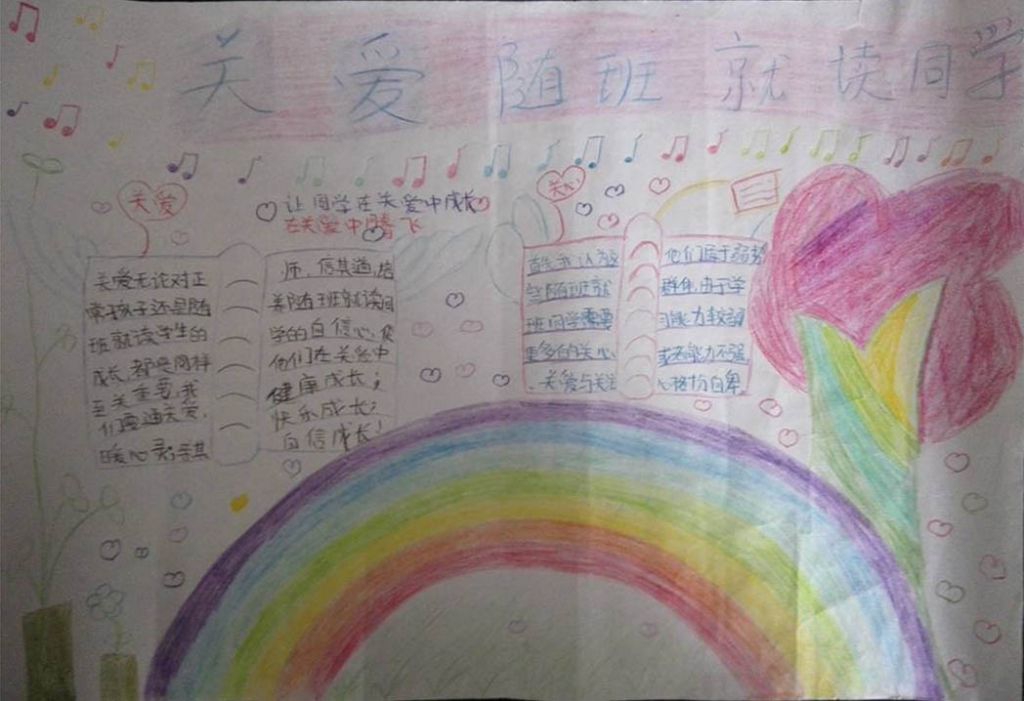 关爱随班就读同学
关爱
让同学在关爱中成长
在关爱中腾飞
关爱无论对正
常孩子还是随
班就读学生的
成长,都是同样
至关重要,我
们要通关爱,
暖心灵寻其
师,信其道,培
养随班就读同
学的自信心,使
他们在关爱中
健康成长;
快乐成长;
自信成长!
关心
首先我认为这
些随班就
班同学需要
更多的关心
、关爱与关注
他们属于弱势
群体,由于学
习能力较弱
或者能力不强
心格扮自卑